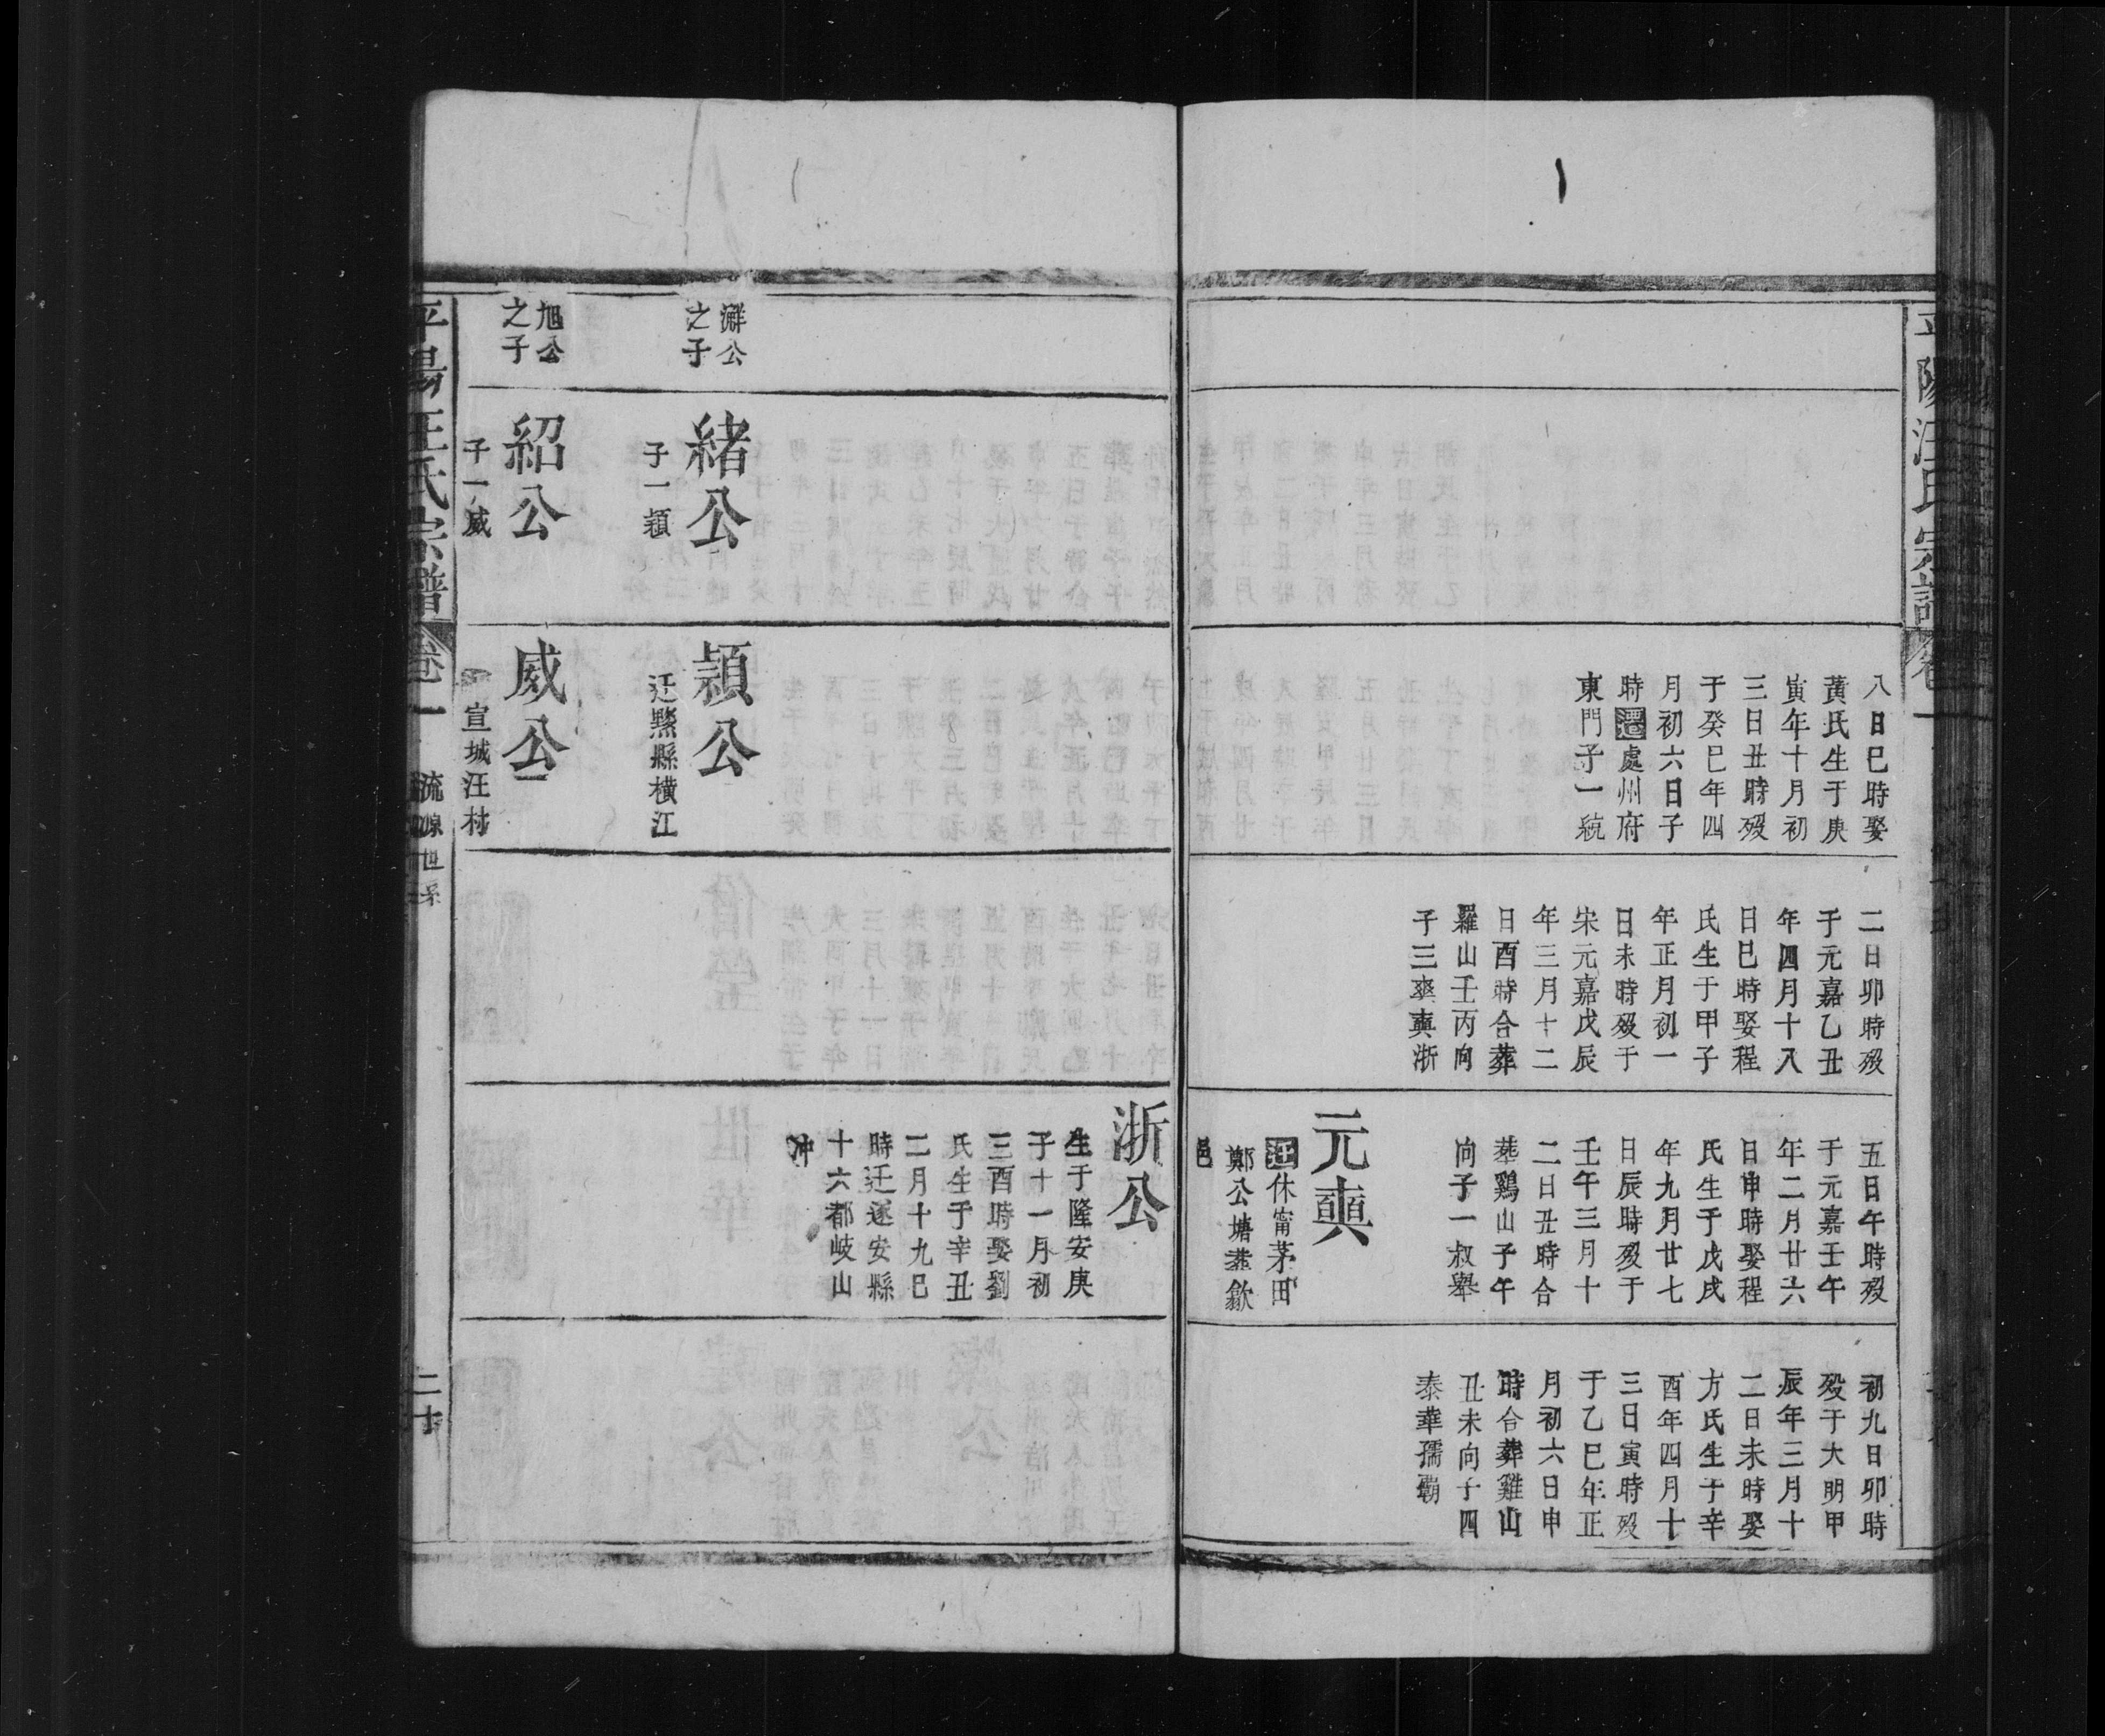 平陽汪氏宗譜
卷一
八日巳時娶
黃氏生于庚
寅年十月初
三日丑時歿
于癸巳年四
月初六日子
時遷處州府
東門子一統
二日卯時歿
于元嘉乙丑
年四月十八
日巳時娶程
氏生于甲子
年正月初一
日未時歿于
宋元嘉戊辰
年三月十二
日酉時合葬
羅山壬丙向
子三奭浙
五日午時歿
于元嘉壬午
年二月廿六
日申時娶程
氏生于戊戌
年九月廿七
日辰時歿于
壬午三月十
二日丑時合
葬鷄山子午
向子一叔舉
元
休甯茅田
鄭公塘葬歙
邑
初九日卯時
歿于大明甲
辰年三月十
二日未時娶
方氏生于辛
酉年四月十
三日寅時歿
于乙巳年正
月初六日申
時合葬雞山
丑未向子四
泰華孺霸
浙公
生于隆安庚
子十一月初
三酉時娶劉
氏生于辛丑
二月十九巳
時迁遂安縣
十六都岐山
冲
澥公
之子
緒公
子一穎
穎公
迁黟縣橫江
旭公
之子
紹公
子一威
威公
宣城汪村
平陽汪氏宗譜
卷一
流源世系
二十